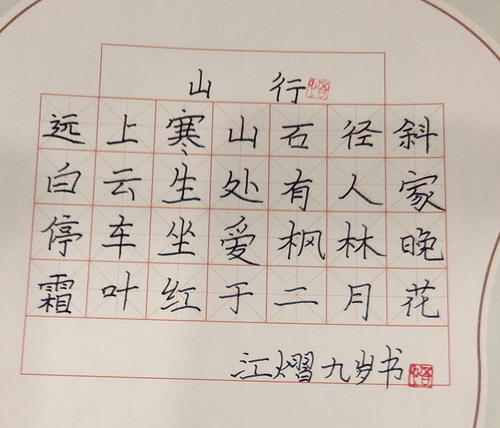 山行
远上寒山石径斜
白云生处有人家
停车坐爱枫林晚
霜叶红于二月花
江熠九岁书